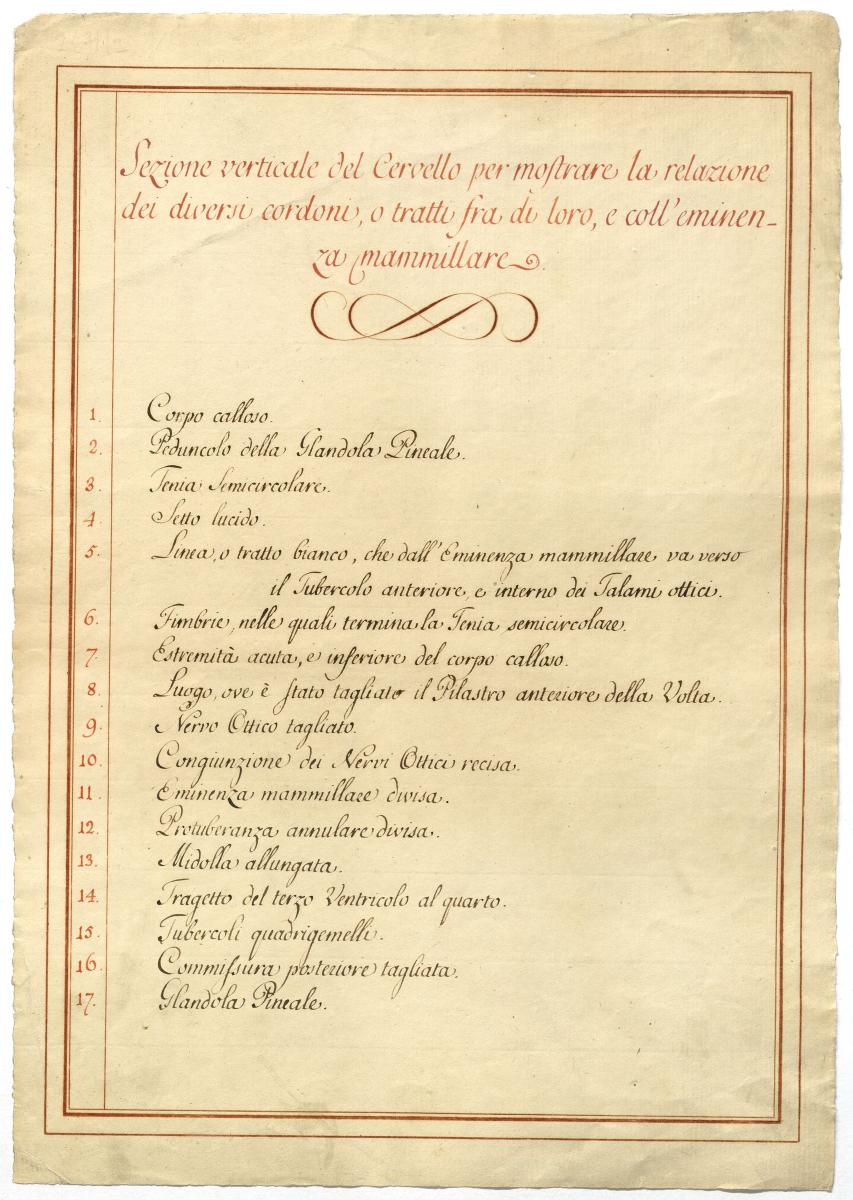 Sezione verticale del Cervello per moſtrare la relazione
dei diversi cordoni, o tratti fra di loro, e coll'eminen-
za mammillare.
1. Corpo calloso.
2. Peduncolo della Glandola Pineale.
3. Tenia Semicircolare.
4. Setto lucido.
5. Linea, o tratto bianco, che dall'Eminenza mammillare va verso
il Tubercolo anteriore, e interno dei Talami ottici.
6. Fimbrie, nelle quali termina la Tenia semicircolare.
7. Estremità acuta, e inferiore del corpo calloso.
8. Luogo, ove è ſtato tagliato il Pilastro anteriore della Volta.
9. Nervo Ottico tagliato.
10. Congiunzione dei Nervi Ottici recisa.
11. Eminenza mammillare divisa.
12. Protuberanza annulare divisa.
13. Midolla allungata.
14. Tragetto del terzo Ventricolo al quarto.
15. Tubercoli quadrigemelli.
16. Commiſsura posteriore tagliata.
17. Glandola Pineale.